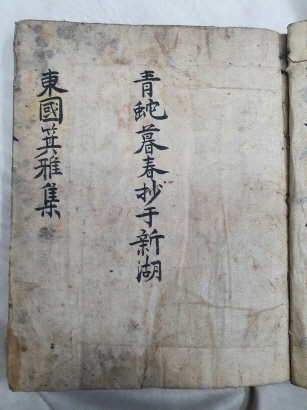 青蛇暮春抄于新湖
東國箕雅集